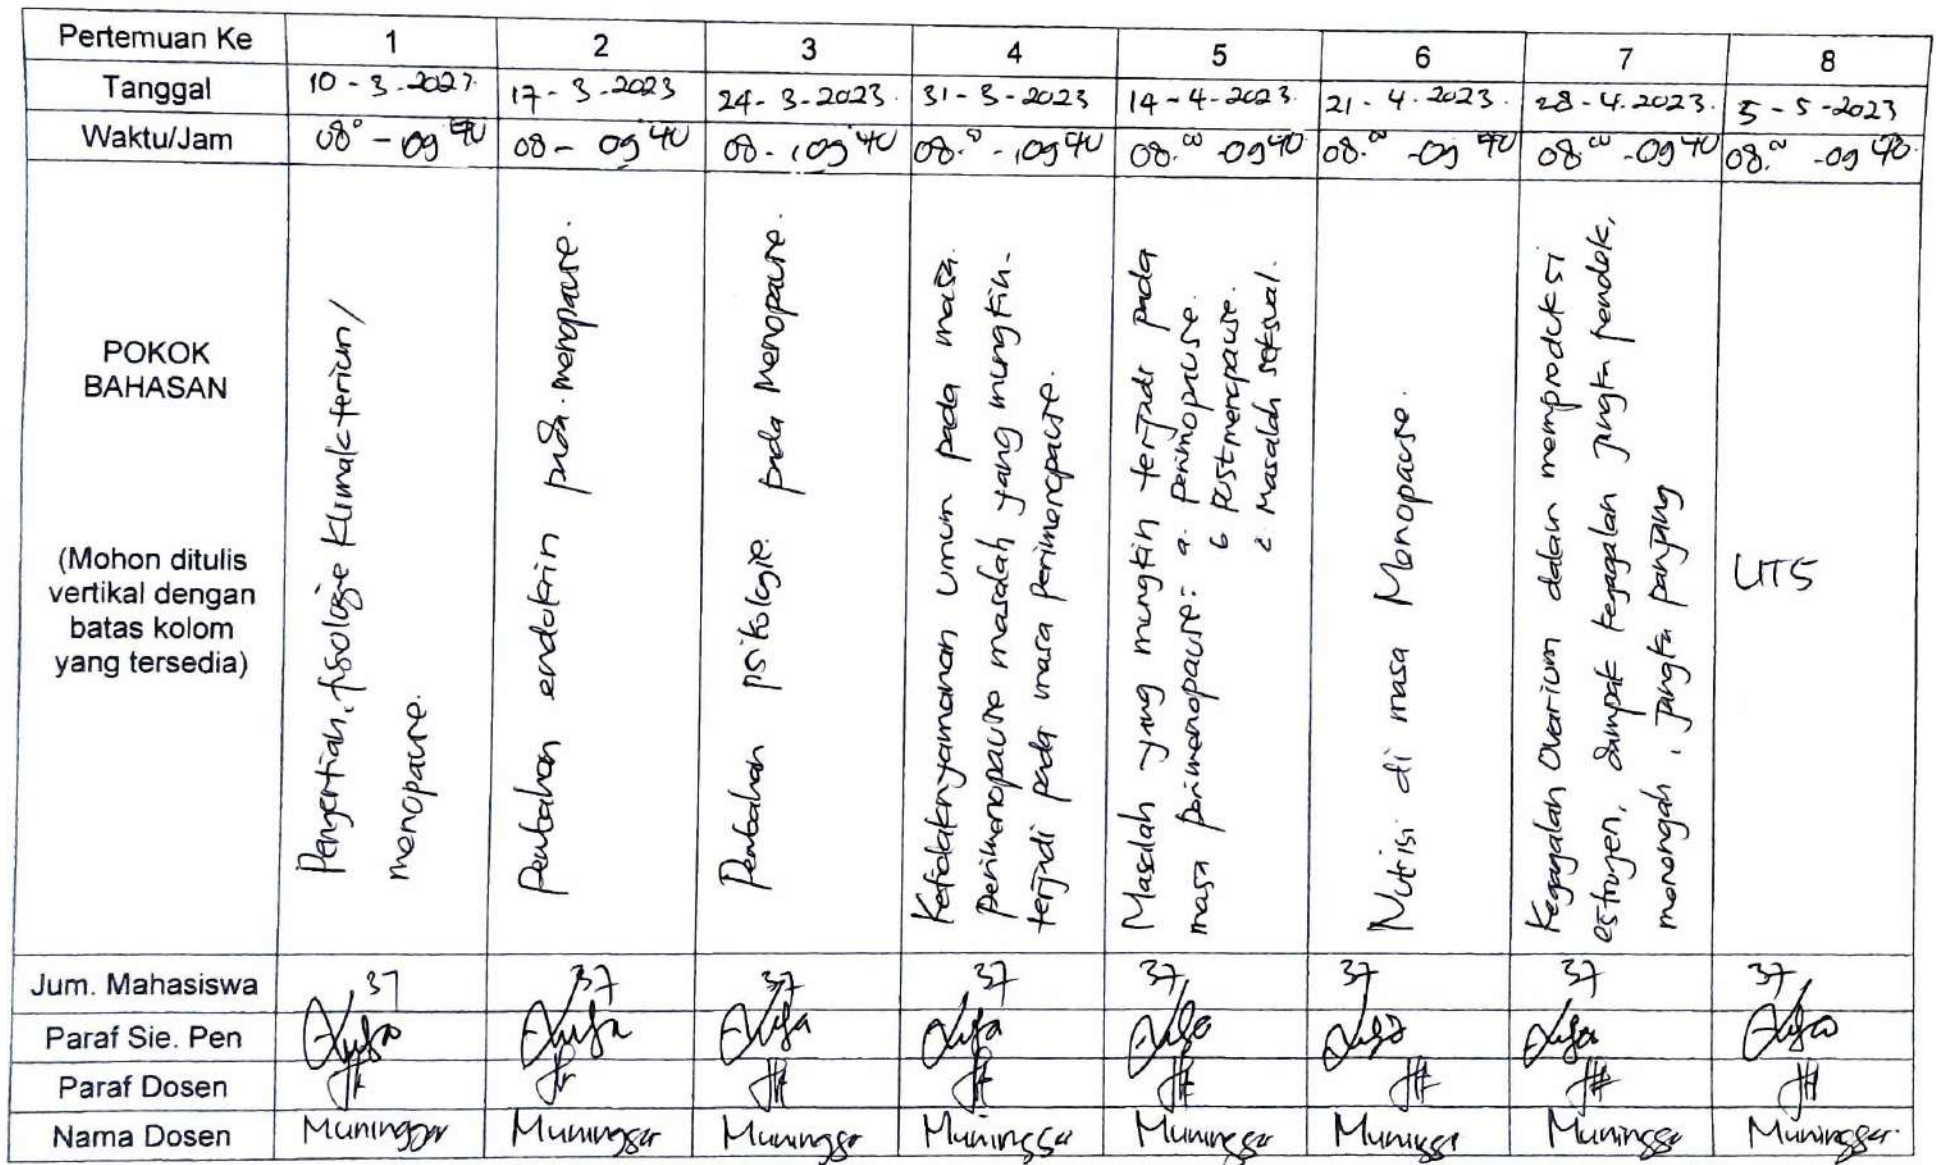 Pertemuan Ke 1 2 3 4 5 6 7 8
Tanggal 10-3-2023. 17-3-2023 24-3-2023. 31-3-2023 14-4-2023. 21-4.2023. 28-4.2023. 5-5-2023
Waktu/Jam 08° - 09 40 08 - 09 40 08 - 09 40 08.00 - 09 40 08.00 - 09 40 08.00 - 09 40 08.00 - 09 40 08.00 - 09 40
POKOK
BAHASAN
(Mohon ditulis
vertikal dengan
batas kolom
yang tersedia)
Pengertian, fisologe Klimakterium/
menopause.
Perubahan endokrin pada menopause.
Perubahan psikologis pada Menopause.
Ketidaknyamanan Umum pada masa
perimenopause masalah yang mungkin
terjadi pada masa perimenopause.
Masalah yang mungkin terjadi pada
masa perimenopause: a. perimopause.
b postmenopause.
c Masalah seksual.
Nutrisi di masa Monopause.
Kegagalan Ovarium dalam memproduksi
estrogen, dampak kegagalan jangka pendek,
menengah, jangka panjang
UTS
Jum. Mahasiswa 37 37 37 37 37 37 37 37
Paraf Sie. Pen
Paraf Dosen
Nama Dosen Muninggar Muninggar Muninggar Muninggar Muninggar Muninggar Muninggar Muninggar.